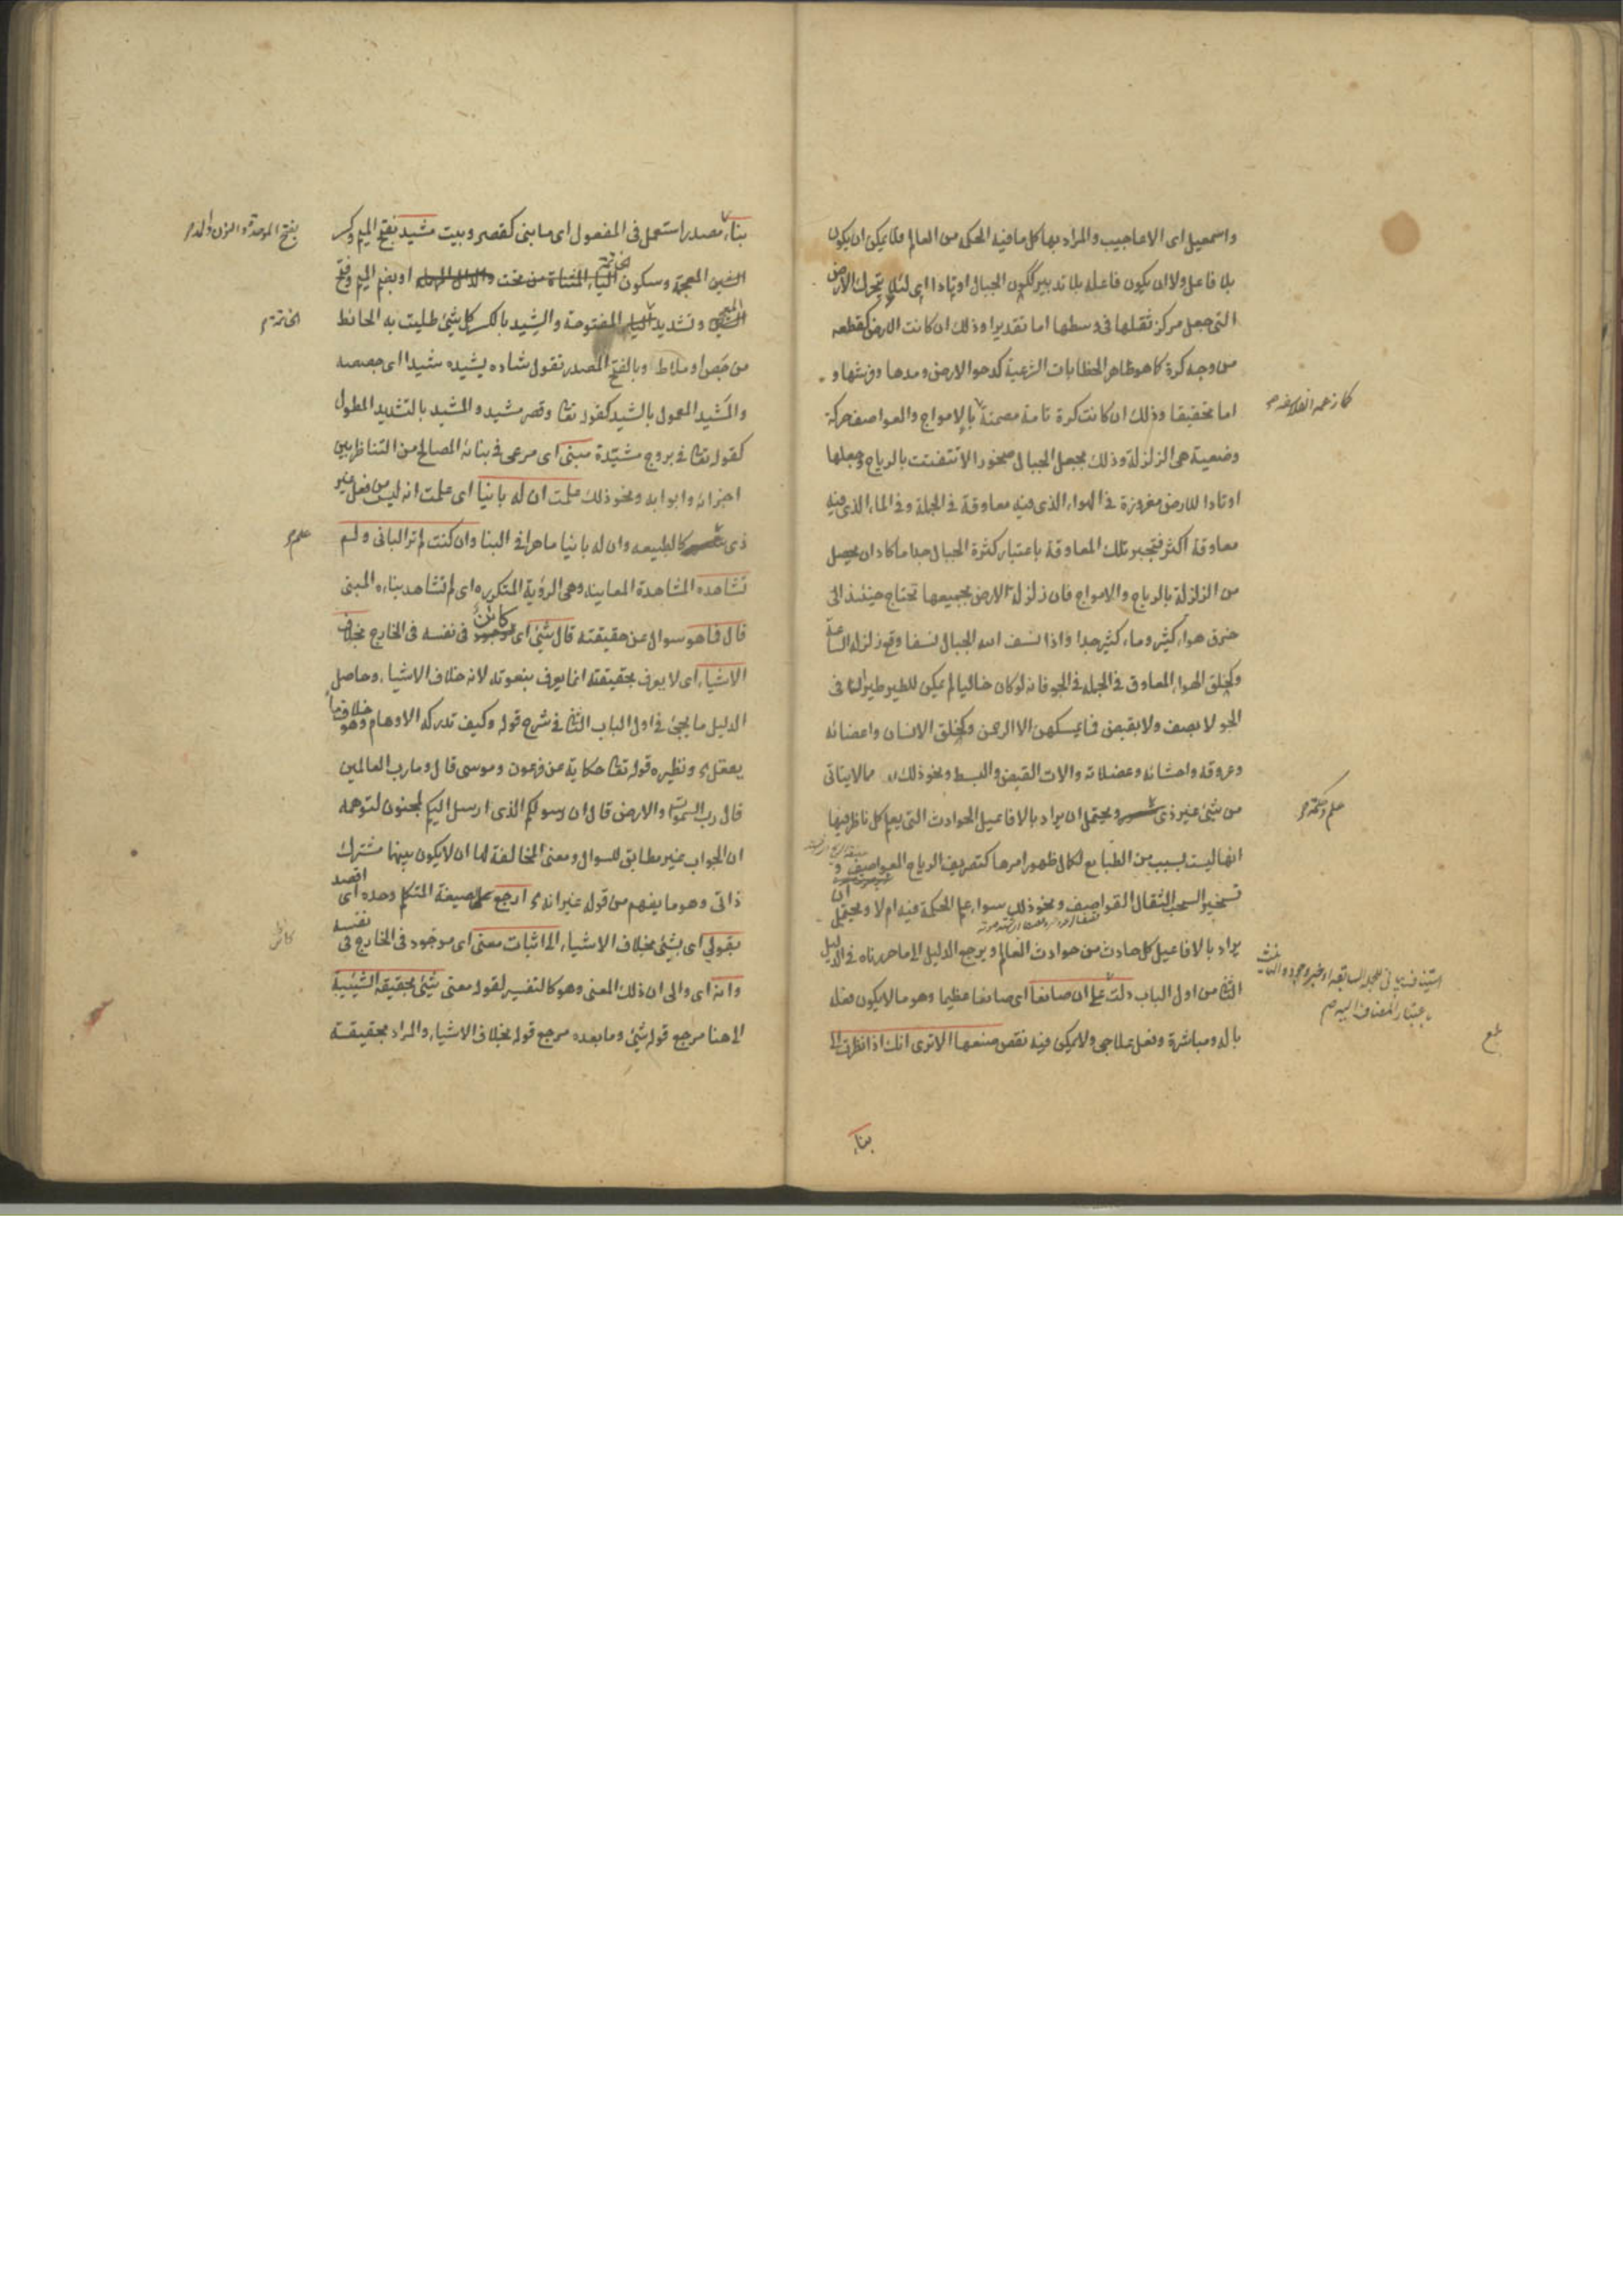 واسمعيل اى الاعاجيب والمراد بها كل ما فيه الحكم من العالم فلا يمكن ان يكون
بلا فاعل ولا ان يكون فاعله بلا تدبير ككون الجبال اوتادا اى لئلا يتحرك الارض
التى جعل مركز ثقلها فى وسطها اما تقديرا وذلك ان كانت الارض كقطعه
من وجه كرة كما هو ظاهر الخطابات الشرعية كدحو الارض ومدها وفرشها و
اما تحقيقا وذلك ان كانت كرة تامة مصمتة بالامواج والعواصف حركة
كما زعمه الفلاسفه
وضعية هى الزلزلة وذلك بجعل الجبال صخورا لا تتفتت بالرياح وجعلها
اوتادا للارض مغروزة فى الهواء الذى فيه معاوقة فى الجملة وفى الماء الذى فيه
معاوقة اكثر فتجبر تلك المعاوقة باعتبار كثرة الجبال جدا ما كاد ان يحصل
من الزلزلة بالرياح والامواج فان زلزلة الارض بجميعها تحتاج حينئذ الى
خرق هواء كثير وماء كثير جدا واذا نسف الله الجبال نسفا وقع زلزلة الساعة
وكخلق الهواء المعاوق فى الجملة فى الجو فانه لو كان خاليا لم يمكن للطير طيرانا فى
الجو لا بصف ولا بقبض فما يمسكهن الا الرحمن وكخلق الانسان واعضائه
وعروقه واحشائه وعضلاته والات القبض والبسط ونحو ذلك مما لا يتاتى
من شئ غير ذى ويحتمل ان يراد بالافاعيل الحوادث التى يعلم كل ناظر فيها
علم وحكمة
انها ليست بسبب من الطبايع لكمال ظهور امرها كتصريف الرياح العواصف و
تسخير السحب الثقال القواصف ونحو ذلك سواء علم الحكمة فيه ام لا ويحتمل ان
يراد بالافاعيل كل حادث من حوادث العالم ويرجع الدليل الى ما حررناه فى الدليل
الثانى من اول الباب دلت على ان صانعا اى صانعا عظيما وهو ما لا يكون فعله
بالة ومباشرة وفعل علاجى ولا يمكن فيه نقص صنعها الا ترى انك اذا نظرت الى
بناء
بناء مصدر استعمل فى المفعول اى ما بنى كقصر وبيت مشيد بفتح الميم وكسر
الشين المعجمة وسكون الياء المثناة من تحت والدال المهملة او بضم الميم وفتح
المعجمة وتشديد الياء المفتوحة والشيد بالكسر كل شئ طليت به الحائط
التحتانية
من جص او ملاط وبالفتح المصدر تقول شاده يشيده شيدا اى جصصه
والمشيد المعمول بالشيد كقوله تعالى وقصر مشيد والمشيد بالتشديد المطول
كقوله تعالى فى بروج مشيدة مبنى اى مرعى فى بنائه المصالح من التناظر بين
اجزائه وابوابه ونحو ذلك علمت ان له بانيا اى علمت انه ليس من فعل غير
ذى كالطبيعه وان له بانيا ماهرا فى البنا وان كنت لم تر البانى ولم
علم
تشاهده المشاهدة المعاينه وهى الرؤية المتكرره اى لم تشاهد بناءه المبنى
قال فما هو سوال عن حقيقته قال شئ اى كائن فى نفسه فى الخارج بخلاف
الاشياء اى لا يعرف بحقيقته انما يعرف بنعوته لانه خلاف الاشياء وحاصل
الدليل ما يجئ فى اول الباب الثانى فى شرح قوله وكيف تدركه الاوهام وهو خلاف ما
يعقل ونظيره قوله تعالى حكاية عن فرعون وموسى قال وما رب العالمين
قال رب السموات والارض قال ان رسولكم الذى ارسل اليكم لمجنون لتوهمه
ان الجواب غير مطابق للسوال ومعنى المخالفة لها ان لا يكون بينهما مشترك
ذاتى وهو ما يفهم من قوله غير انه ارجع على صيغة المتكلم وحده اى اقصد
بقولى اى بشئ بخلاف الاشياء الى اثبات معنى اى موجود فى الخارج فى نفسه
كائن
وانه اى والى ان ذلك المعنى وهو كالتفسير لقوله معنى شئ بحقيقة الشيئية
الى هنا مرجع قوله شئ وما بعده مرجع قوله بخلاف الاشياء والمراد بحقيقة